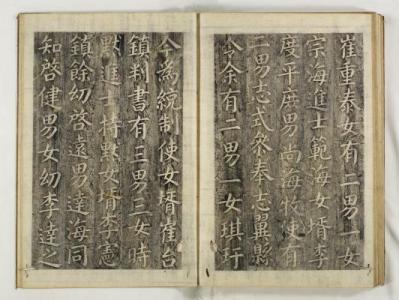 崔重泰女有二男一女
宗海進士範海女壻李
度平庶男尚海牧使有
二男志式參奉志翼縣
令余有二男一女琪圢
今為統制使女壻崔台
鎮判書有三男三女時
默進士持默女壻李憲
鎮餘幼啓遠男達海同
知啓健男女幼李達之